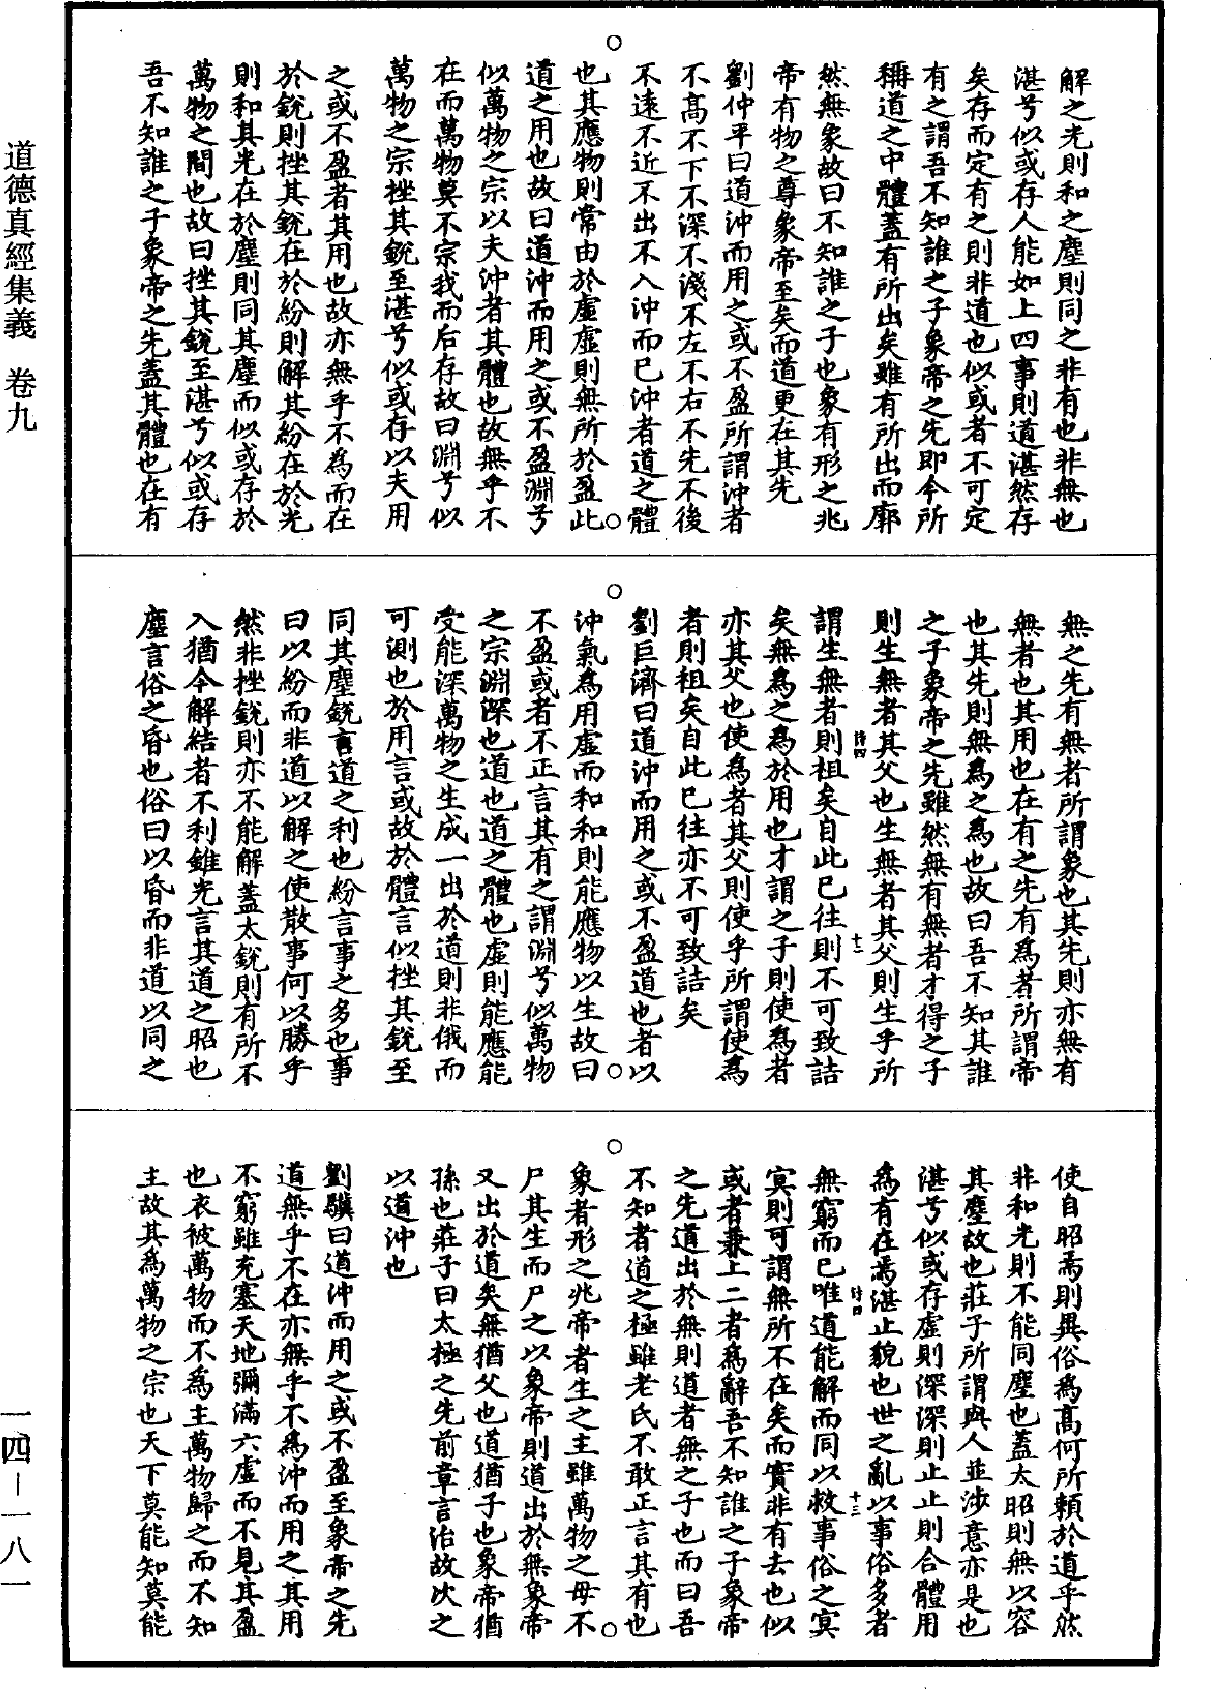 道德真經集義　卷九
一四—一八一
解之光則和之塵則同之非有也非無也
湛兮似或存人能如上四事則道湛然存
矣存而定有之則非道也似或者不可定
有之謂吾不知誰之子象帝之先即今所
稱道之中體蓋有所出矣雖有所出而廓
然無象故曰不知誰之子也象有形之兆
帝有物之尊象帝至矣而道更在其先
劉仲平曰道沖而用之或不盈所謂沖者
不高不下不深不淺不左不右不先不後
不遠不近不出不入沖而已沖者道之體
也其應物則常由於虛虛則無所於盈此
道之用也故曰道沖而用之或不盈淵兮
似萬物之宗以夫沖者其體也故無乎不
在而萬物莫不宗我而后存故曰淵兮似
萬物之宗挫其銳至湛兮似或存以夫用
之或不盈者其用也故亦無乎不為而在
於銳則挫其銳在於紛則解其紛在於光
則和其光在於塵則同其塵而似或存於
萬物之間也故曰挫其銳至湛兮似或存
吾不知誰之子象帝之先蓋其體也在有
無之先有無者所謂象也其先則亦無有
無者也其用也在有之先有為者所謂帝
也其先則無為之為也故曰吾不知其誰
之子象帝之先雖然無有無者才得之子
則生無者其父也生無者其父則生乎所
謂生無者則祖矣自此已往則不可致詰
矣無為之為於用也才謂之子則使為者
亦其父也使為者其父則使乎所謂使為
者則祖矣自此已往亦不可致詰矣
劉巨濟曰道沖而用之或不盈道也者以
沖氣為用虛而和和則能應物以生故曰
不盈或者不正言其有之謂淵兮似萬物
之宗淵深也道也道之體也虛則能應能
受能深萬物之生成一出於道則非俄而
可測也於用言或故於體言似挫其銳至
同其塵銳言道之利也紛言事之多也事
曰以紛而非道以解之使散事何以勝乎
然非挫銳則亦不能解蓋太銳則有所不
入猶今解結者不利錐光言其道之昭也
塵言俗之昏也俗曰以昏而非道以同之
使自昭焉則異俗為高何所賴於道乎然
非和光則不能同塵也蓋太昭則無以容
其塵故也莊子所謂與人並涉意亦是也
湛兮似或存虛則深深則止止則合體用
為有在焉湛止貌也世之亂以事俗多者
無窮而已唯道能解而同以救事俗之冥
冥則可謂無所不在矣而實非有去也似
或者兼上二者為辭吾不知誰之子象帝
之先道出於無則道者無之子也而曰吾
不知者道之極雖老氏不敢正言其有也
象者形之兆帝者生之主雖萬物之母不
尸其生而尸之以象帝則道出於無象帝
又出於道矣無猶父也道猶子也象帝猶
孫也莊子曰太極之先前章言治故次之
以道沖也
劉驥曰道沖而用之或不盈至象帝之先
道無乎不在亦無乎不為沖而用之其用
不窮雖充塞天地彌滿六虛而不見其盈
也衣被萬物而不為主萬物歸之而不知
主故其為萬物之宗也天下莫能知莫能